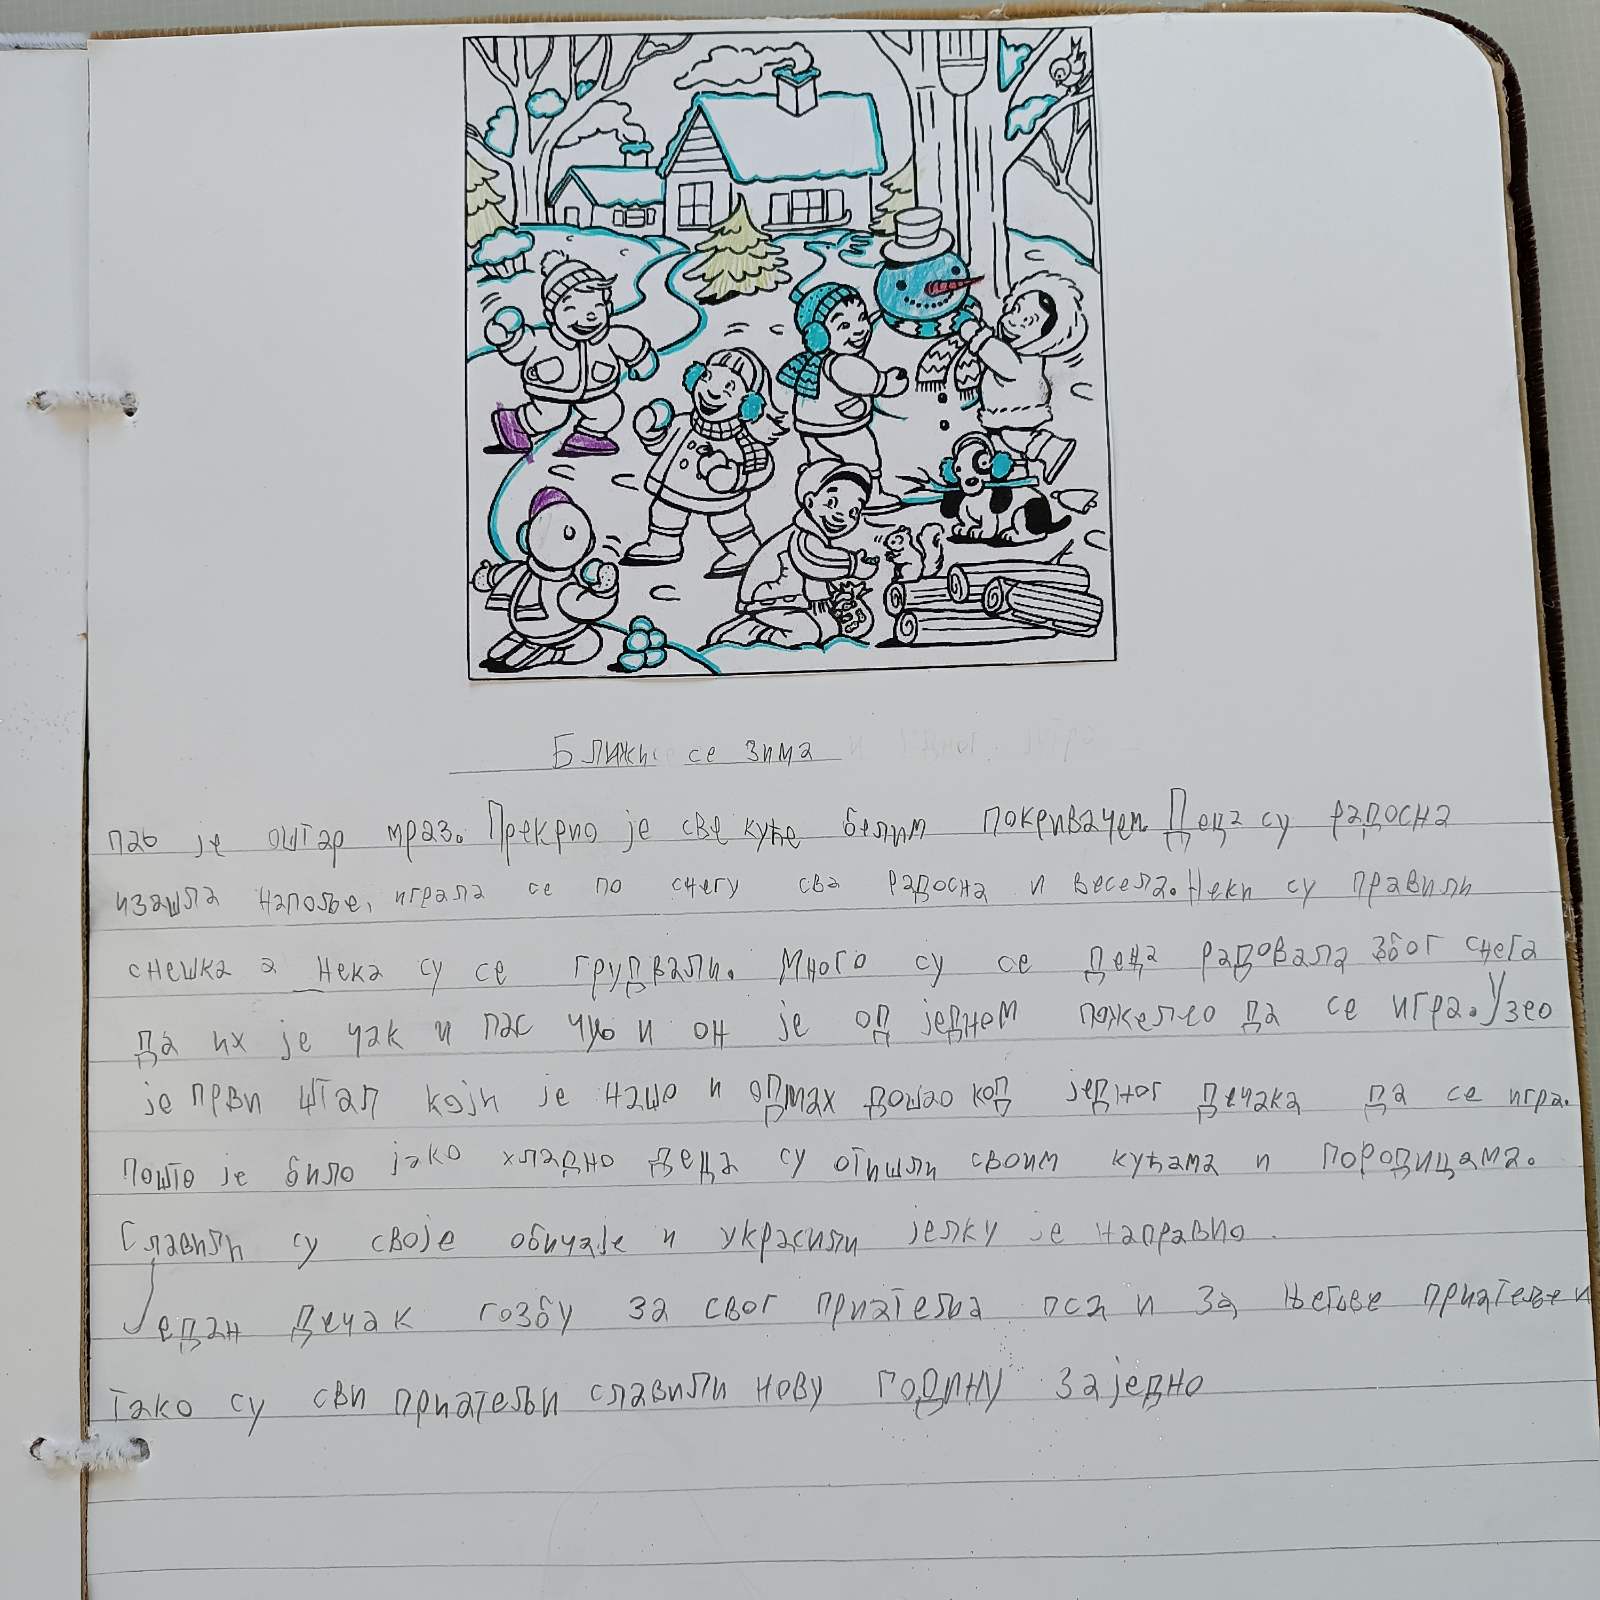 Ближи се зима
пао је оштар мраз. Прекрио је све куће белим покривачем. Деца су радосна
изашла напоље, играла се по снегу сва радосна и весела. Неки су правили
снешка а нека су се грудвали. Много су се деца радовала због снега
да их је чак и пас чуо и он је од једном пожелео да се игра. Узео
је први штап који је нашо и одмах дошао код једног дечака да се игра.
пошто је било јако хладно деца су отишли своим кућама и породицама.
Славили су своје обичаје и украсили јелку је направио.
Један дечак гозбу за свог приатеља пса и за његове приатеље и
тако су сви приатељи славили нову годину заједно